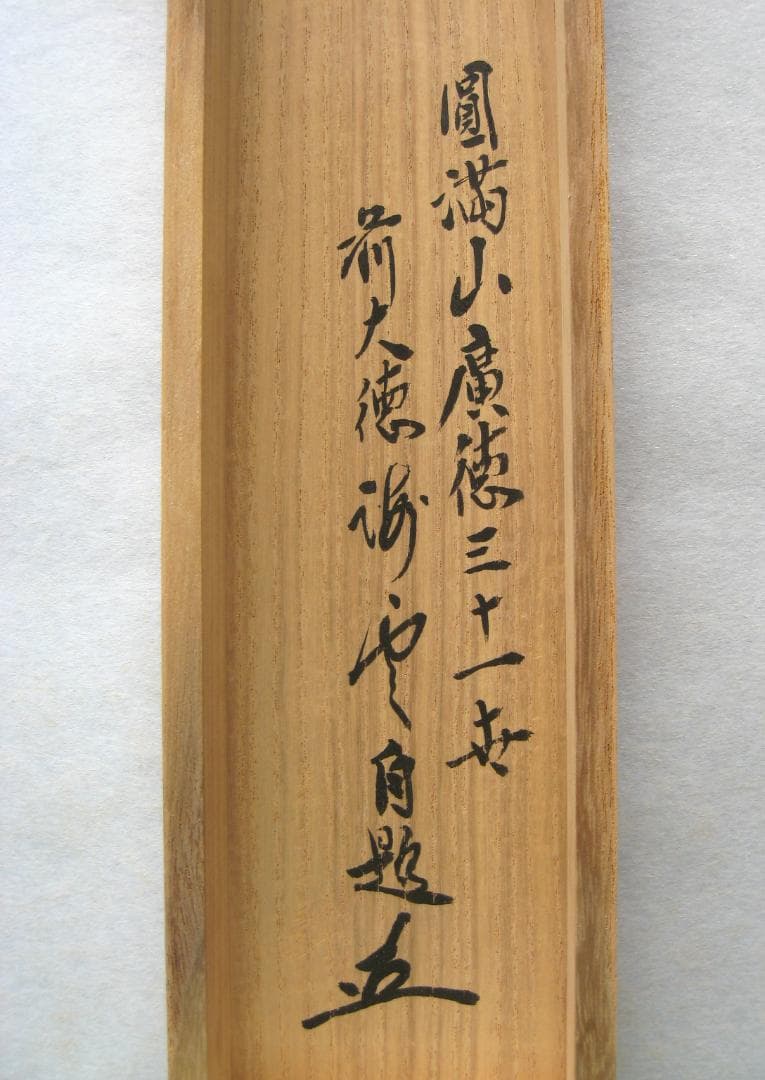 圓満山廣徳三十一世
前大徳海雲自題